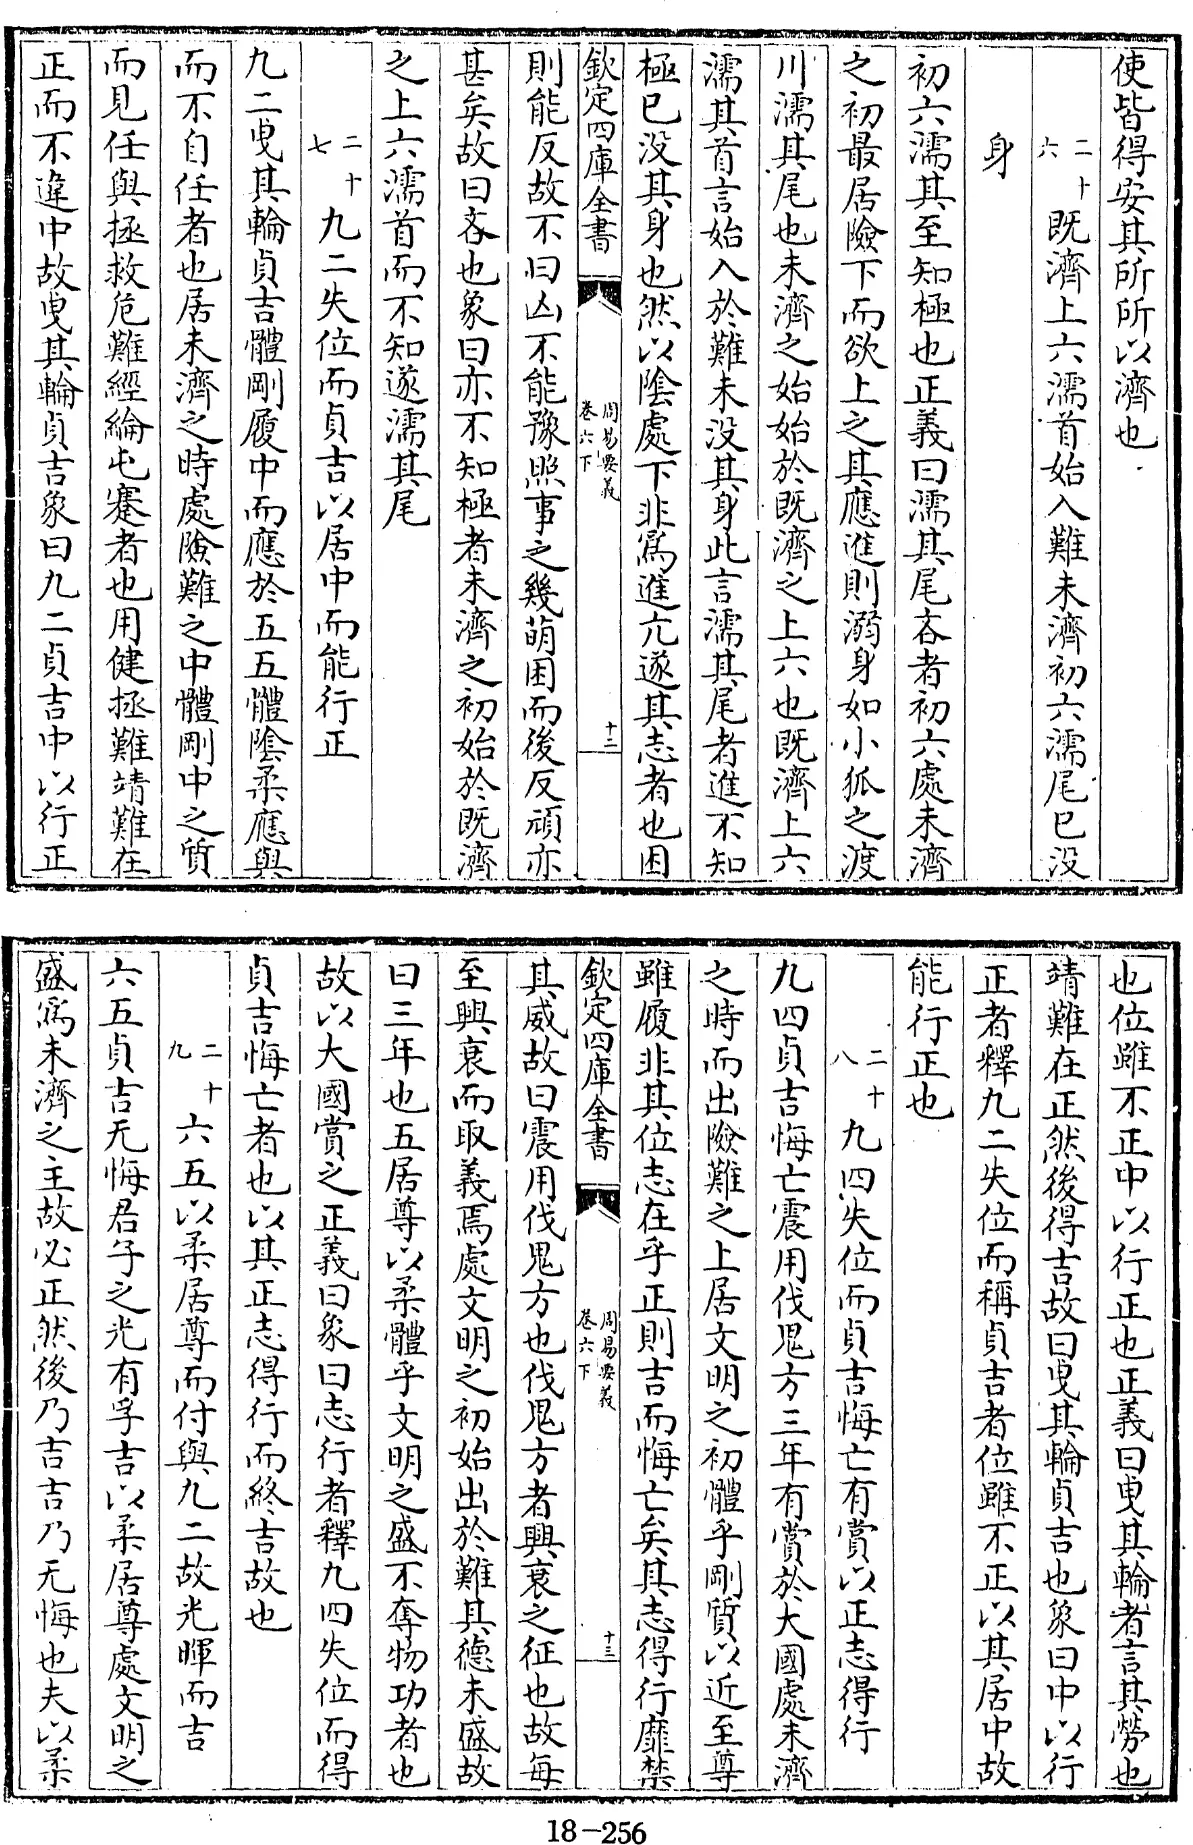 使皆得安其所所以濟也
二十六　既濟上六濡首始入難未濟初六濡尾已没
身
初六濡其至知極也正義曰濡其尾吝者初六處未濟
之初最居險下而欲上之其應進則溺身如小狐之渡
川濡其尾也未濟之始始於既濟之上六也既濟上六
濡其首言始入於難未没其身此言濡其尾者進不知
極已没其身也然以陰處下非爲進亢遂其志者也困
欽定四庫全書　周易要義　卷六下　十二
則能反故不曰凶不能豫照事之幾萌困而後反頑亦
甚矣故曰吝也象曰亦不知極者未濟之初始於既濟
之上六濡首而不知遂濡其尾
二十七　九二失位而貞吉以居中而能行正
九二曳其輪貞吉體剛履中而應於五五體陰柔應與
而不自任者也居未濟之時處險難之中體剛中之質
而見任與拯救危難經綸屯蹇者也用健拯難靖難在
正而不違中故曳其輪貞吉象曰九二貞吉中以行正
也位雖不正中以行正也正義曰曳其輪者言其勞也
靖難在正然後得吉故曰曳其輪貞吉也象曰中以行
正者釋九二失位而稱貞吉者位雖不正以其居中故
能行正也
二十八　九四失位而貞吉悔亡有賞以正志得行
九四貞吉悔亡震用伐鬼方三年有賞於大國處未濟
之時而出險難之上居文明之初體乎剛質以近至尊
雖履非其位志在乎正則吉而悔亡矣其志得行靡禁
欽定四庫全書　周易要義　卷六下　十三
其威故曰震用伐鬼方也伐鬼方者興衰之征也故每
至興衰而取義焉處文明之初始出於難其德未盛故
曰三年也五居尊以柔體乎文明之盛不奪物功者也
故以大國賞之正義曰象曰志行者釋九四失位而得
貞吉悔亡者也以其正志得行而終吉故也
二十九　六五以柔居尊而付與九二故光暉而吉
六五貞吉无悔君子之光有孚吉以柔居尊處文明之
盛爲未濟之主故必正然後乃吉吉乃无悔也夫以柔
18-256